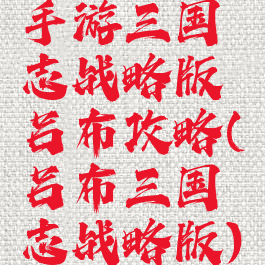 手游三国
志战略版
吕布攻略(
吕布三国
志战略版)